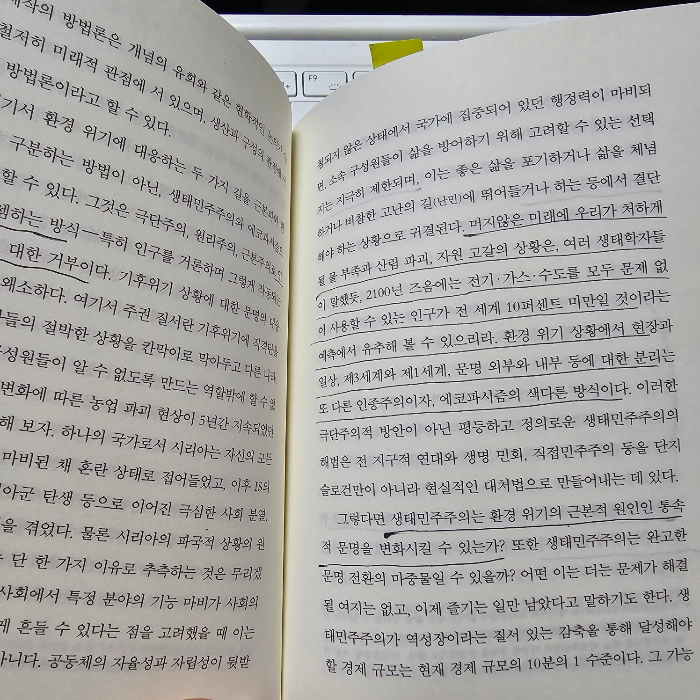 제작의 방법론은 개념의 유희와 같은 협학적인 논의가
철저히 미래적 관점에 서 있으며, 생산과 구성의 관점에서
방법론이라고 할 수 있다.
여기서 환경 위기에 대응하는 두 가지 길을 근본
구분하는 방법이 아닌, 생태민주주의와 에코파시즘
할 수 있다. 그것은 극단주의, 원리주의, 근본주의로
하는 방식—특히 인구를 거론하며 그렇게 작동
대한 거부이다. 기후위기 상황에 대한 문명의 대응
왜소하다. 여기서 주권 질서란 기후위기에 직격탄을
들의 절박한 상황을 칸막이로 막아두고 다른 나라
구성원들이 알 수 없도록 만드는 역할밖에 할 수 없
변화에 따른 농업 파괴 현상이 5년간 지속되었던
해 보자. 하나의 국가로서 시리아는 자신의 모든
마비된 채 혼란 상태로 접어들었고, 이후 IS의
아군 탄생 등으로 이어진 극심한 사회 분열,
을 겪었다. 물론 시리아의 파국적 상황의 원
단 한 가지 이유로 추측하는 것은 무리겠
사회에서 특정 분야의 기능 마비가 사회의
게 흔들 수 있다는 점을 고려했을 때 이는
아니다. 공동체의 자율성과 자립성이 뒷받
침되지 않은 상태에서 국가에 집중되어 있던 행정력이 마비되
면, 소속 구성원들이 삶을 방어하기 위해 고려할 수 있는 선택
지는 지극히 제한되며, 이는 좋은 삶을 포기하거나 삶을 체념
하거나 비참한 고난의 길(난민)에 뛰어들거나 하는 등에서 결단
해야 하는 상황으로 귀결된다. 머지않은 미래에 우리가 처하게
될 물 부족과 산림 파괴, 자원 고갈의 상황은, 여러 생태학자들
이 말했듯, 2100년 즈음에는 전기·가스·수도를 모두 문제 없
이 사용할 수 있는 인구가 전 세계 10퍼센트 미만일 것이라는
예측에서 유추해 볼 수 있으리라. 환경 위기 상황에서 현장과
일상, 제3세계와 제1세계, 문명 외부와 내부 등에 대한 분리는
또 다른 인종주의이자, 에코파시즘의 색다른 방식이다. 이러한
극단주의적 방안이 아닌 평등하고 정의로운 생태민주주의의
해법은 전 지구적 연대와 생명 민회, 직접민주주의 등을 단지
슬로건만이 아니라 현실적인 대처법으로 만들어내는 데 있다.
그렇다면 생태민주주의는 환경 위기의 근본적 원인인 통속
적 문명을 변화시킬 수 있는가? 또한 생태민주주의는 완고한
문명 전환의 마중물일 수 있을까? 어떤 이는 더는 문제가 해결
될 여지는 없고, 이제 즐기는 일만 남았다고 말하기도 한다. 생
태민주주의가 역성장이라는 질서 있는 감축을 통해 달성해야
할 경제 규모는 현재 경제 규모의 10분의 1 수준이다. 그 가능
F9